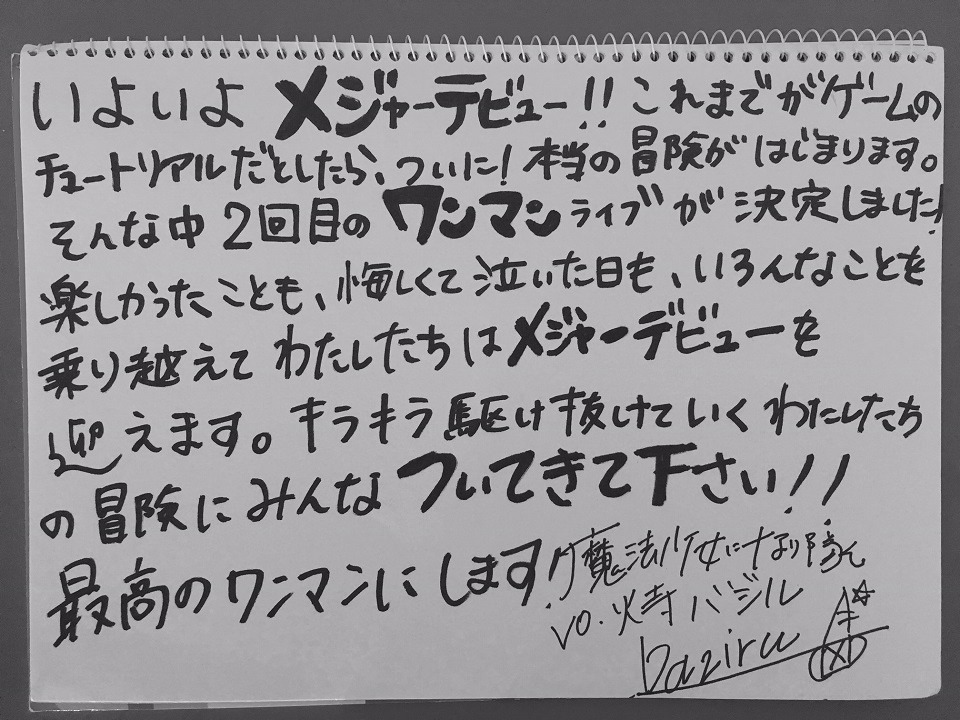 いよいよ メジャーデビュー!! これまでがゲームの
チュートリアルだとしたら、ついに!本当の冒険がはじまります。
そんな中 2回目の ワンマンライブが決定しました!
楽しかったことも、悔しくて泣いた日も、いろんなことを
乗り越えて わたしたちは メジャーデビューを
迎えます。キラキラ駆け抜けていく わたしたち
の冒険にみんな ついてきて下さい!!
最高のワンマンにします!!
魔法少女になり隊
vo. 火寺バジル
Baziru